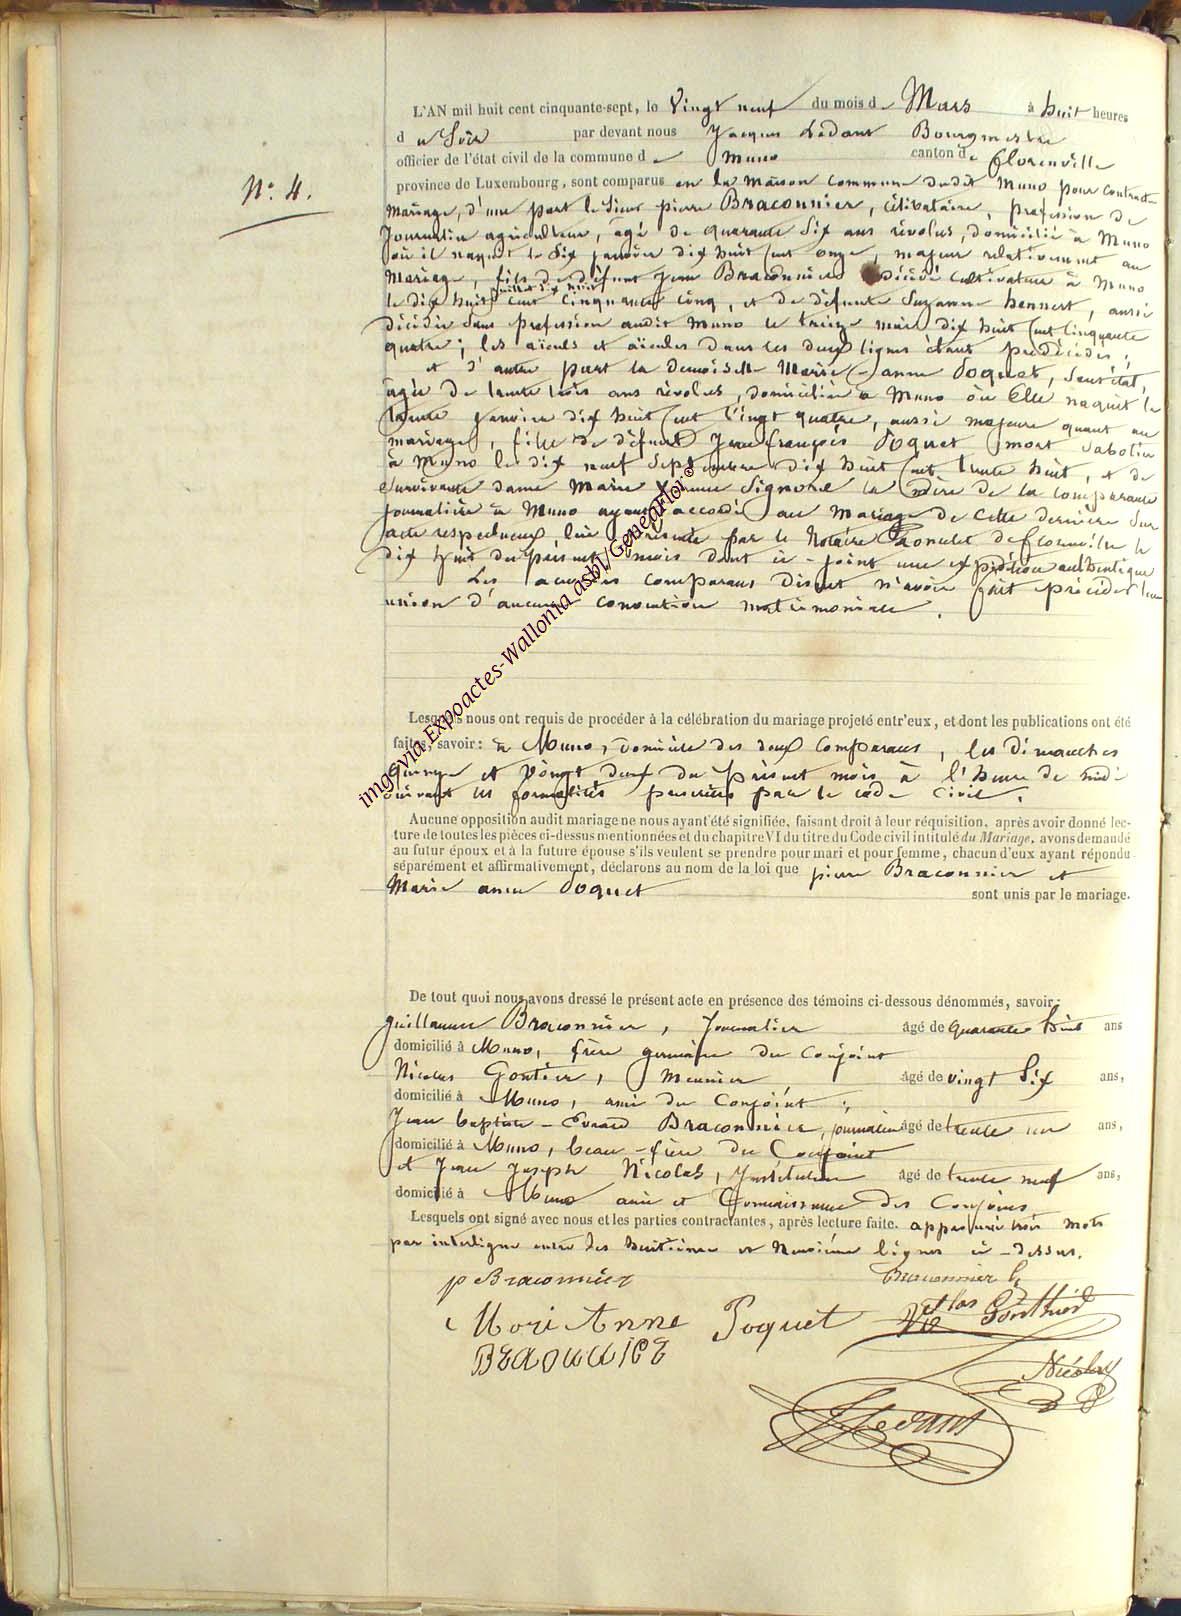 N° 4.
L'AN mil huit cent cinquante-sept, le Vingt neuf du mois de Mars à huit heures
du Soir par devant nous Jacques Ledant Bourgmestre
officier de l'état civil de la commune de Muno canton de florenville
province de Luxembourg, sont comparus en la maison commune dudit Muno pour contracter
Mariage, d'une part le Sieur pierre Braconnier, célibataire, profession de
Journalier agriculteur, âgé de quarante Six ans révolus, domicilié à Muno
où il naquit le Six janvier dix huit cent onze, majeur relativement au
Mariage, fils de défunt Jean Braconnier décédé cultivateur à Muno
juillet dix huit
le dix huit cent cinquante cinq, et de défunte Suzanne hennert, aussi
décédée Sans profession audit Muno le treize mai dix huit cent cinquante
quatre; les aïeuls et aïeules dans les deux lignes étant prédécédés;
et d'autre part la demoiselle Marie-anne Poquet, Sans état,
âgée de trente trois ans révolus, domiciliée à Muno où Elle naquit le
trente janvier dix huit cent vingt quatre, aussi majeure quant au
mariage, fille de défunt Jean françois Poquet mort Sabotier
à Muno le dix neuf Septembre dix huit cent trente huit, et de
Survivante dame Marie Signorel la mère de la comparante
journalière à Muno ayant accédé au Mariage de cette dernière Sur
acte respectueux, lui présenté par le Notaire de florenville le
dix huit du présent mois dont ci-joint une expédition authentique
Les comparans disent n'avoir fait précéder leur
union d'aucune convention matrimoniale.
Lesquels nous ont requis de procéder à la célébration du mariage projeté entr'eux, et dont les publications ont été
faites, savoir: à Muno, Domicile des deux comparans, les Dimanches
quinze et Vingt deux du présent mois à l'heure de midi
suivant les formalités prescrites par le code Civil.
Aucune opposition audit mariage ne nous ayant été signifiée, faisant droit à leur réquisition, après avoir donné lec-
ture de toutes les pièces ci-dessus mentionnées et du chapitre VI du titre du Code civil intitulé du Mariage, avons demandé
au futur époux et à la future épouse s'ils veulent se prendre pour mari et pour femme, chacun d'eux ayant répondu
séparément et affirmativement, déclarons au nom de la loi que pierre Braconnier et
Marie anne Poquet sont unis par le mariage.
De tout quoi nous avons dressé le présent acte en présence des témoins ci-dessous dénommés, savoir:
guillaume Braconnier, Journalier âgé de quarante huit ans
domicilié à Muno, frère germain du conjoint
Nicolas Gontier, Meunier âgé de vingt Six ans,
domicilié à Muno, ami du Conjoint;
Jean baptiste-Evrard Braconnier, journalier âgé de trente un ans,
domicilié à Muno, beau-frère du Conjoint
et Jean Joseph Nicolas, Instituteur âgé de trente neuf ans,
domicilié à Muno ami et Connaissance des Conjoins
Lesquels ont signé avec nous et les parties contractantes, après lecture faite. approuvé trois mots
par interligne entre les huitième et Neuvième lignes ci-dessus.
p Braconnier Braconnier G
Mari Anne Poquet Gonthier
Nicolas
J Ledant
imgs via Expoactes-Wallonia asbl/GeneaFlor©